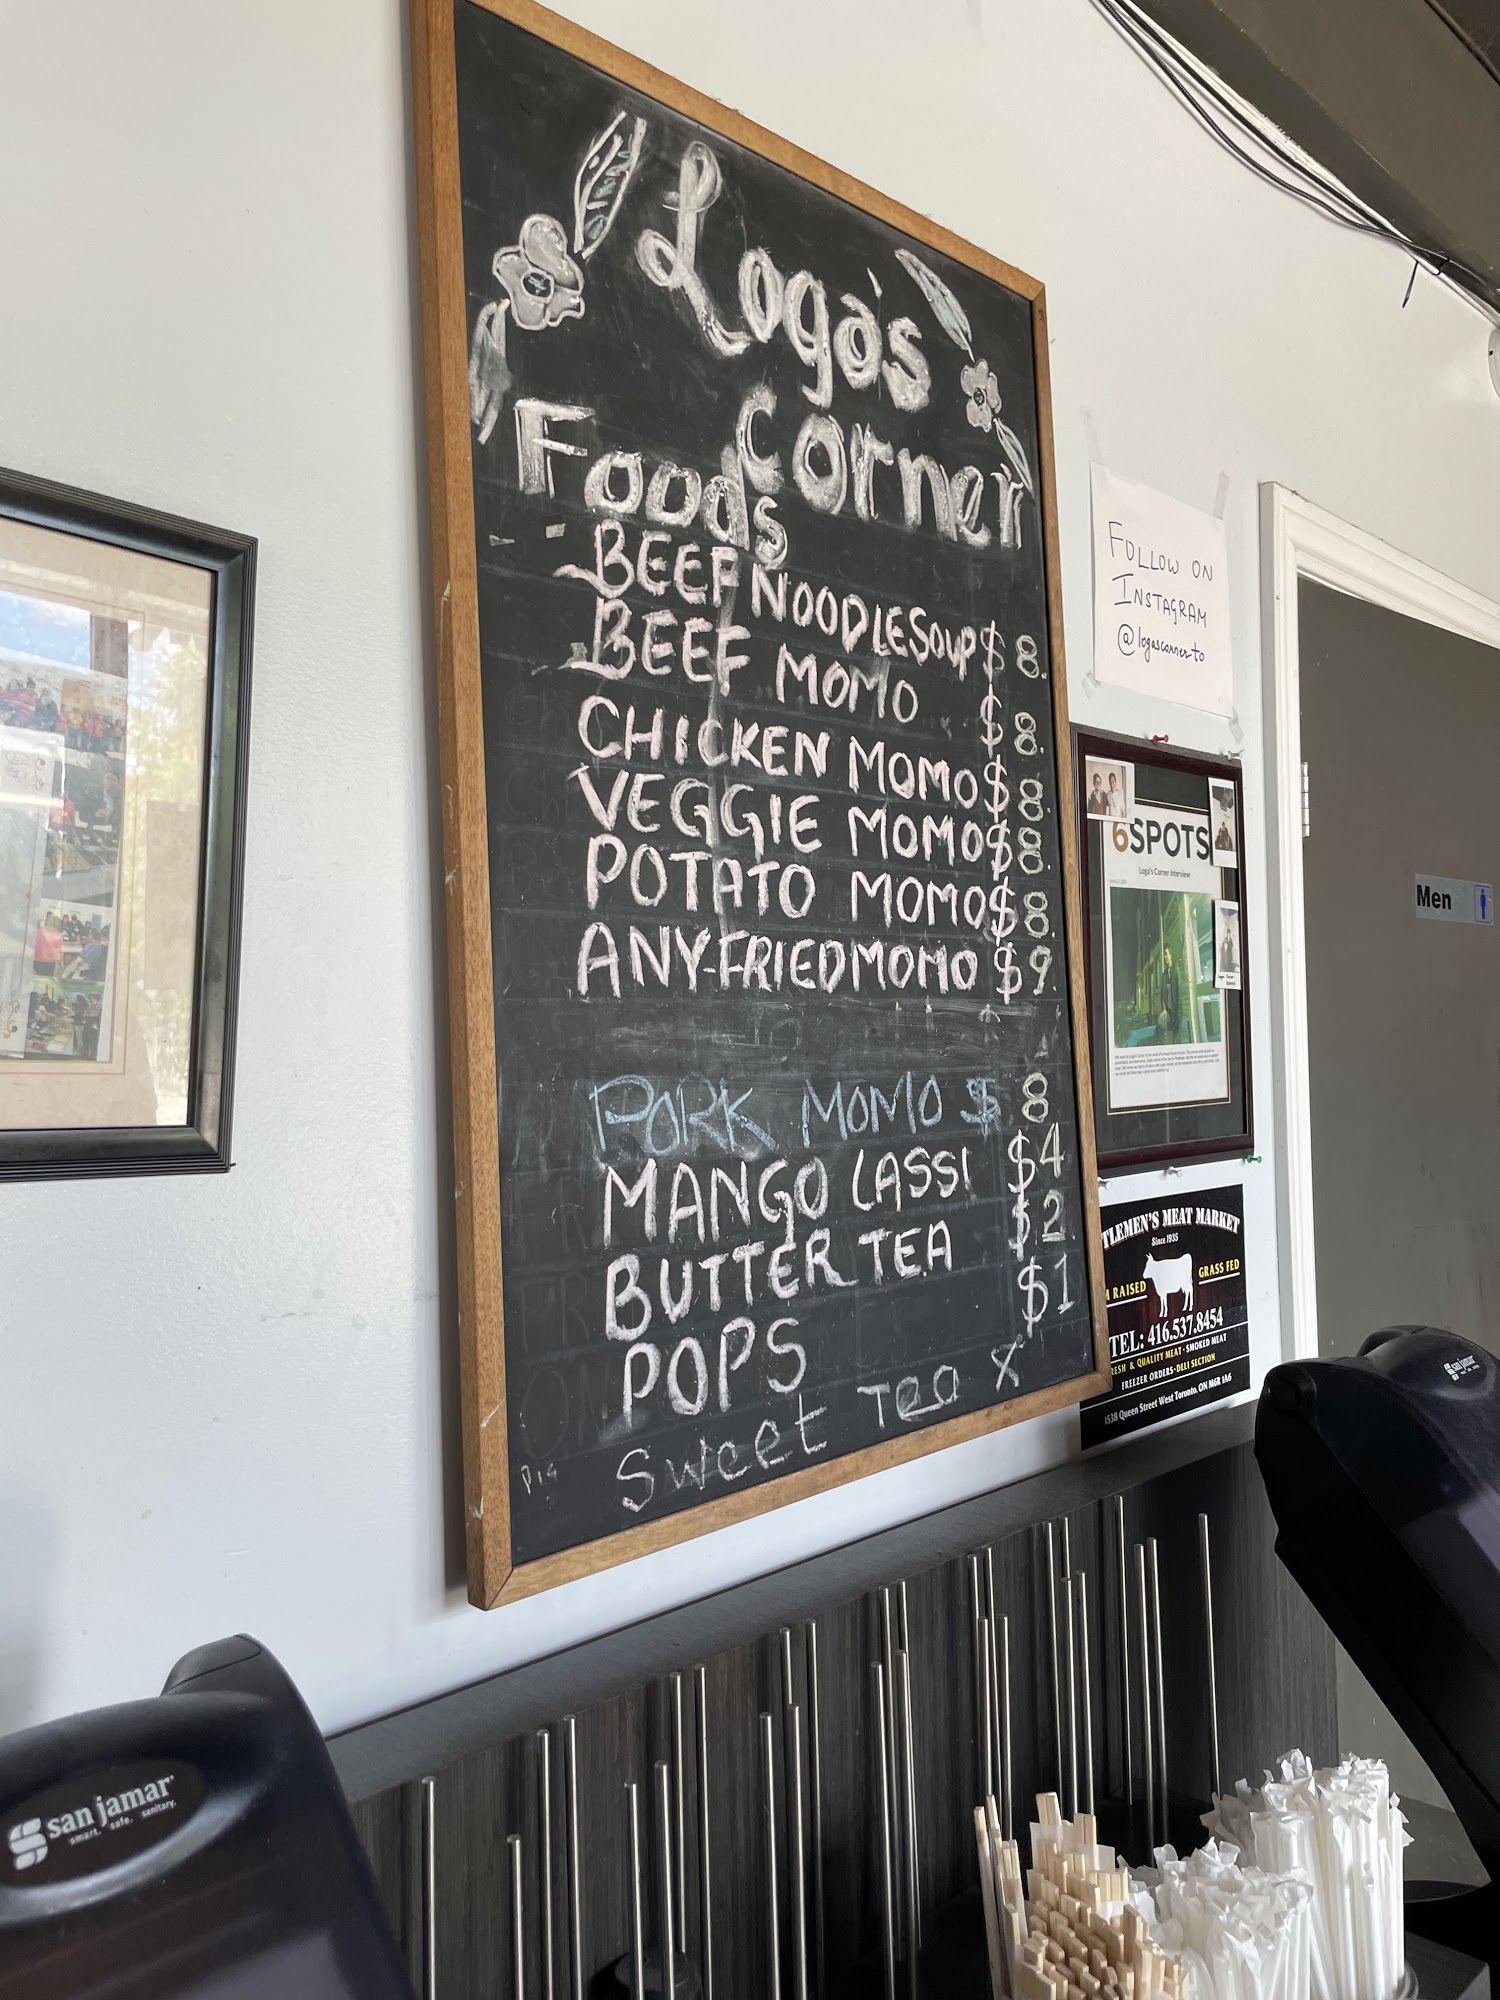 Loga's
Corner
Foods
BEEF NOODLE SOUP $ 8.
BEEF MOMO $ 8.
CHICKEN MOMO $ 8.
VEGGIE MOMO $ 8.
POTATO MOMO $ 8.
ANY-FRIED MOMO $ 9.
PORK MOMO $ 8
MANGO LASSI $4
BUTTER TEA $2.
POPS $1
Sweet Tea X
FOLLOW ON
INSTAGRAM
@logascorner.to
6SPOTS
Loga's Corner Interview
Men
TLEMEN'S MEAT MARKET
Since 1935
RAISED
GRASS FED
TEL: 416.537.8454
RESH & QUALITY MEAT · SMOKED MEAT
FREEZER ORDERS · DELI SECTION
1538 Queen Street West Toronto, ON M6R 1A6
san jamar
smart. safe. sanitary.
san jamar